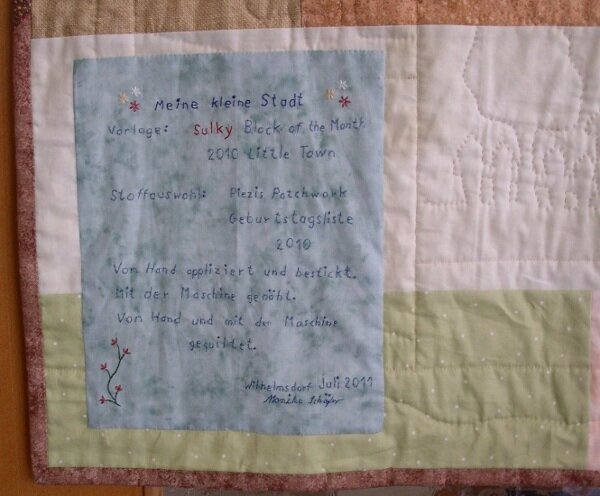 Meine kleine Stadt
Vorlage: Sulky Block of the Month
2010 Little Town
Stoffauswahl: Piezis Patchwork
Geburtstagsliste
2010
Von Hand appliziert und bestickt.
Mit der Maschine genäht.
Von Hand und mit der Maschine
gequiltet.
Wilhelmsdorf Juli 2011
Monika Schäfer